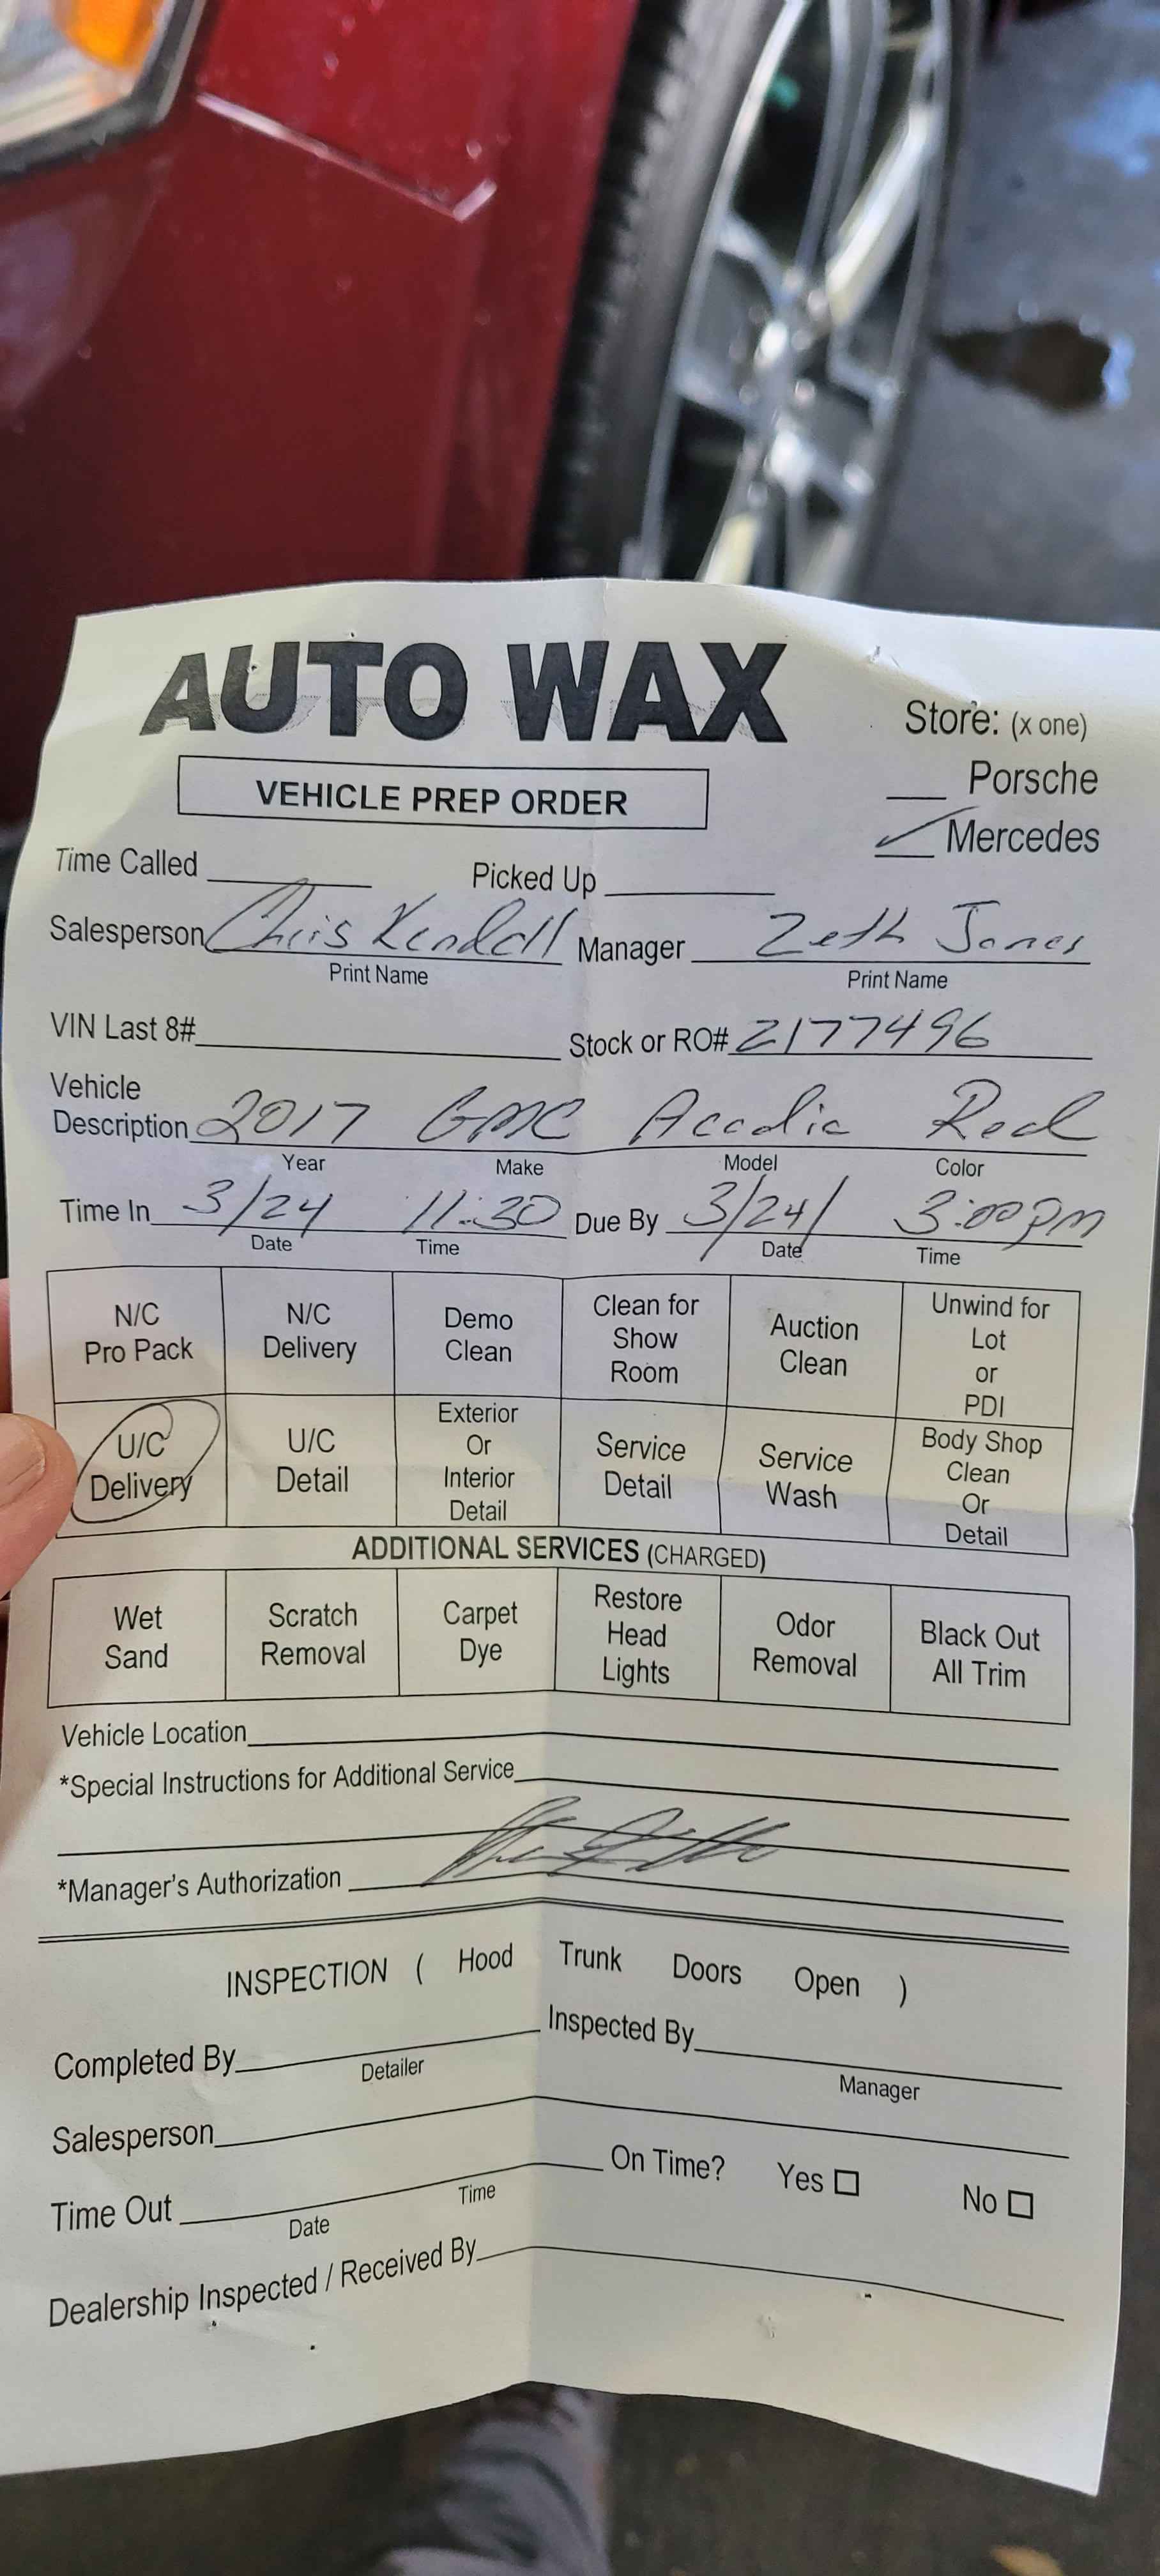 AUTO WAX
Store: (x one)
VEHICLE PREP ORDER
___ Porsche
✓ Mercedes
Time Called ________ Picked Up ________
Salesperson Chris Kendall Manager Zeth Jones
Print Name Print Name
VIN Last 8# ________ Stock or RO# 2177496
Vehicle
Description 2017 GMC Acadia Red
Year Make Model Color
Time In 3/24 11:30 Due By 3/24/ 3:00pm
Date Time Date Time
N/C Pro Pack
N/C Delivery
Demo Clean
Clean for Show Room
Auction Clean
Unwind for Lot or PDI
U/C Delivery
U/C Detail
Exterior Or Interior Detail
Service Detail
Service Wash
Body Shop Clean Or Detail
ADDITIONAL SERVICES (CHARGED)
Wet Sand
Scratch Removal
Carpet Dye
Restore Head Lights
Odor Removal
Black Out All Trim
Vehicle Location
*Special Instructions for Additional Service
*Manager's Authorization
INSPECTION ( Hood Trunk Doors Open )
Completed By ________ Inspected By ________
Detailer Manager
Salesperson
Time Out ________ On Time? Yes □ No □
Date Time
Dealership Inspected / Received By